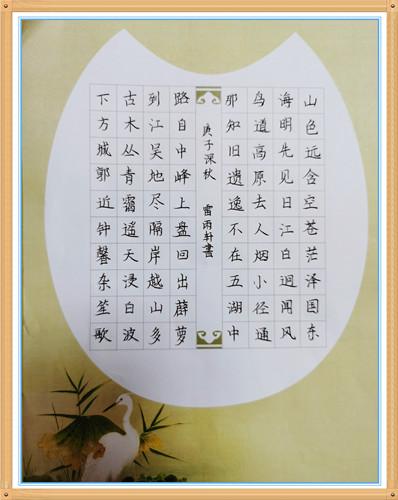 山色远含空苍茫泽国东
海明先见日江白迥闻风
鸟道高原去人烟小径通
那知旧遗逸不在五湖中
庚子深秋 雷雨轩書
路自中峰上盘回出薜萝
到江吴地尽隔岸越山多
古木丛青霭遥天浸白波
下方城郭近钟磬杂笙歌